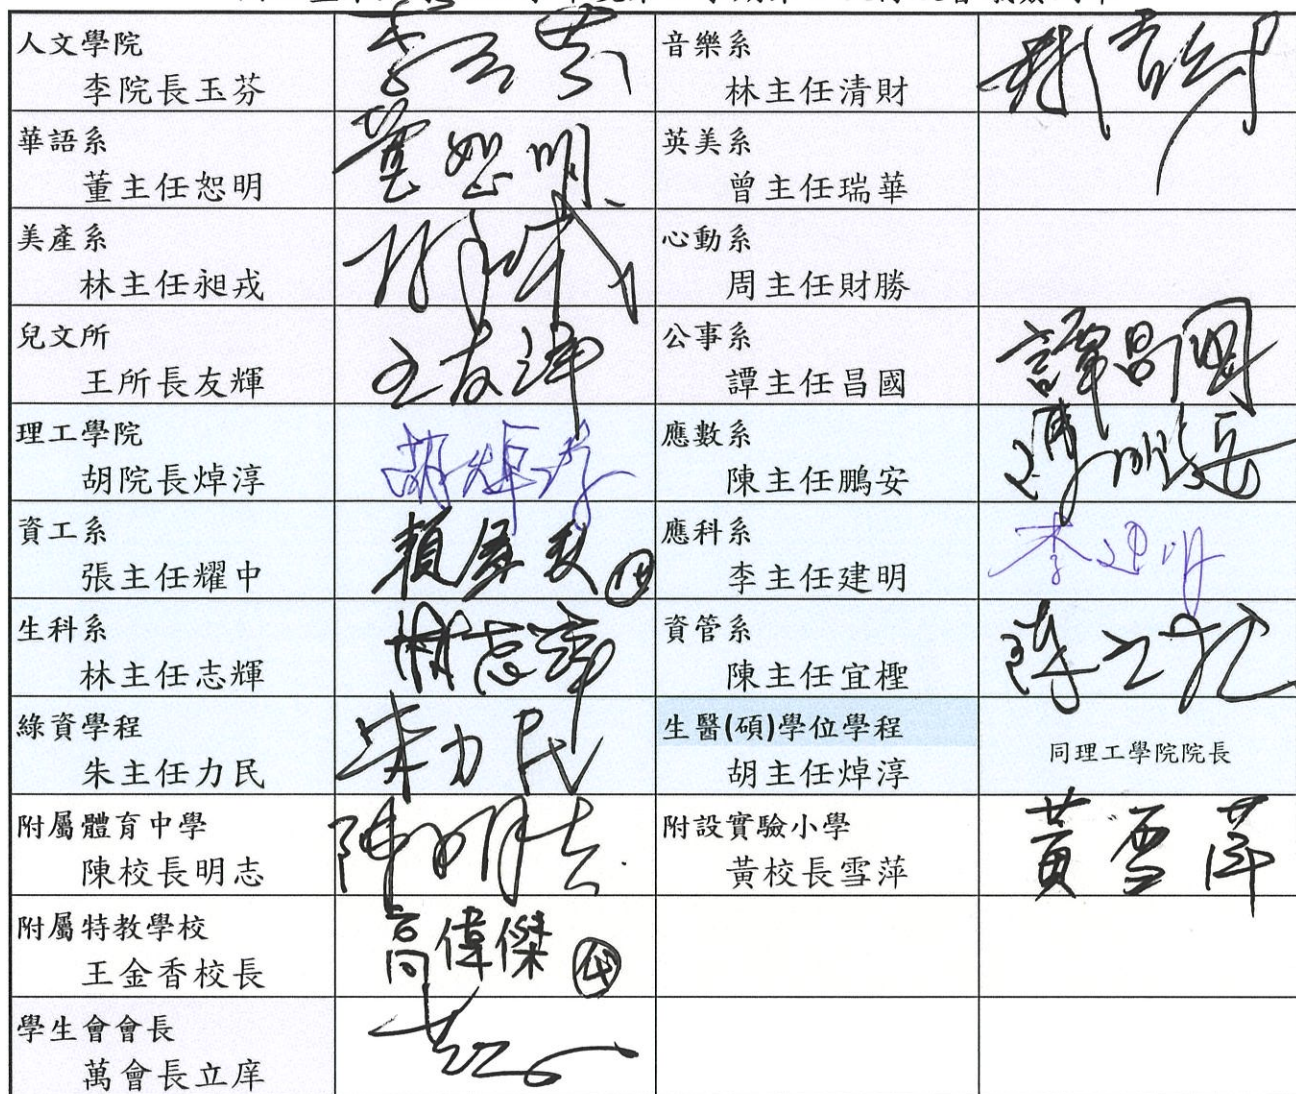 人文學院
李院長玉芬
李玉芬
音樂系
林主任清財
華語系
董主任恕明
董恕明
英美系
曾主任瑞華
美產系
林主任昶戎
心動系
周主任財勝
兒文所
王所長友輝
王友輝
公事系
譚主任昌國
譚昌國
理工學院
胡院長焯淳
胡焯淳
應數系
陳主任鵬安
資工系
張主任耀中
代
應科系
李主任建明
李建明
生科系
林主任志輝
資管系
陳主任宜檉
綠資學程
朱主任力民
朱力民
生醫(碩)學位學程
胡主任焯淳
同理工學院院長
附屬體育中學
陳校長明志
陳明志
附設實驗小學
黃校長雪萍
黃雪萍
附屬特教學校
王金香校長
高偉傑 代
學生會會長
萬會長立庠